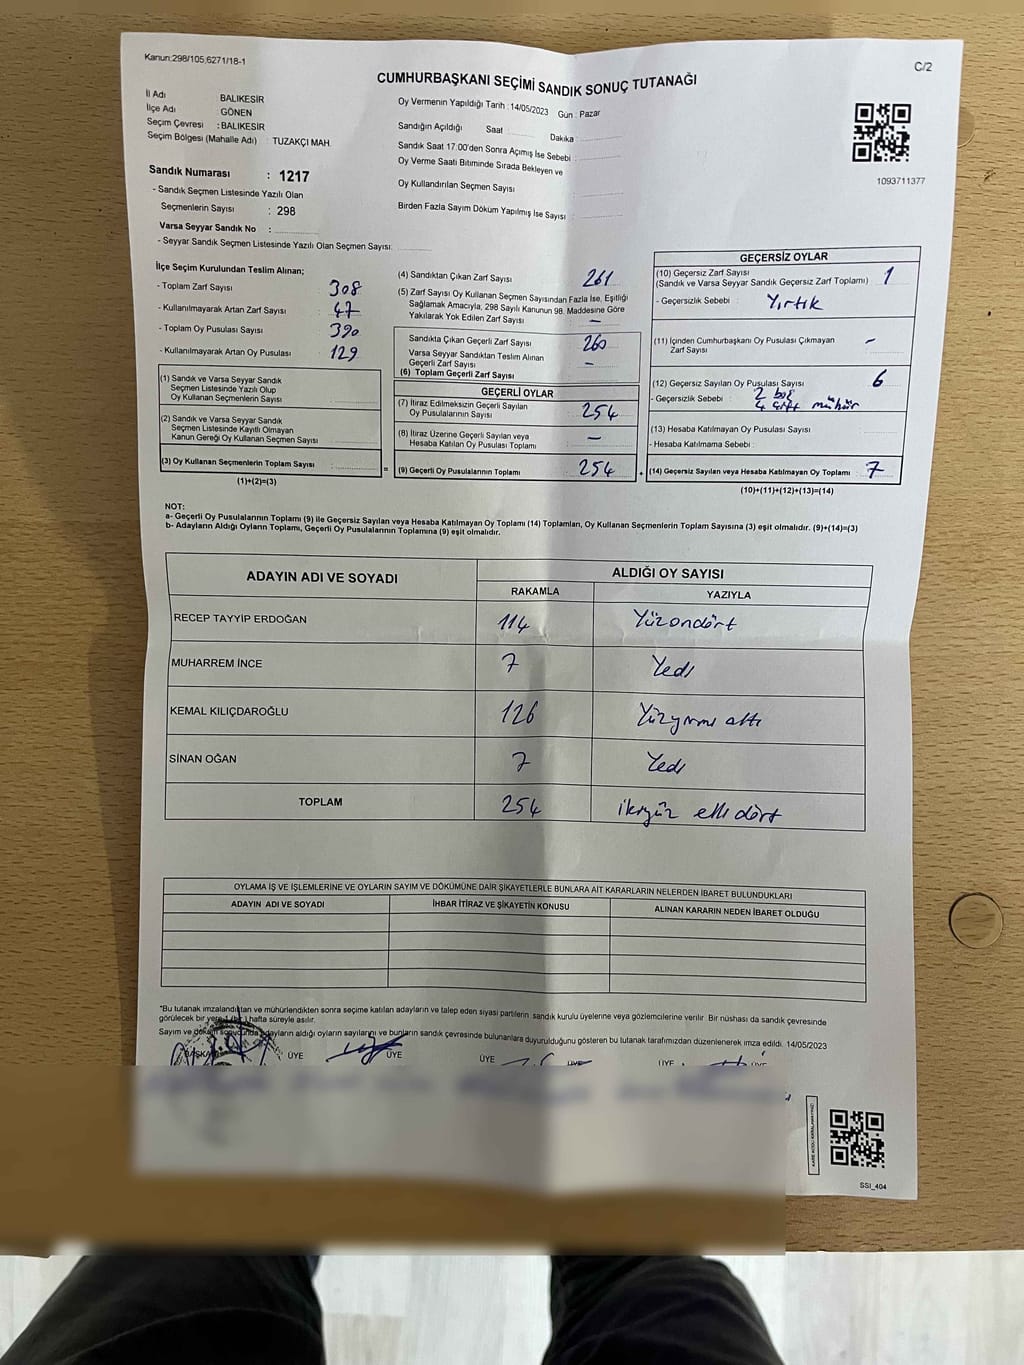 Kanun:298/105;6271/18-1
C/2
CUMHURBAŞKANI SEÇİMİ SANDIK SONUÇ TUTANAĞI
İl Adı BALIKESİR
İlçe Adı GÖNEN
Seçim Çevresi : BALIKESİR
Seçim Bölgesi (Mahalle Adı) : TUZAKÇI MAH.
Sandık Numarası : 1217
- Sandık Seçmen Listesinde Yazılı Olan
Seçmenlerin Sayısı : 298
Varsa Seyyar Sandık No :
- Seyyar Sandık Seçmen Listesinde Yazılı Olan Seçmen Sayısı:
Oy Vermenin Yapıldığı Tarih : 14/05/2023 Gün : Pazar
Sandığın Açıldığı Saat Dakika
Sandık Saat 17:00'den Sonra Açımış İse Sebebi :
Oy Verme Saati Bitiminde Sırada Bekleyen ve
Oy Kullandırılan Seçmen Sayısı
Birden Fazla Sayım Döküm Yapılmış İse Sayısı :
1093711377
İlçe Seçim Kurulundan Teslim Alınan;
- Toplam Zarf Sayısı : 308
- Kullanılmayarak Artan Zarf Sayısı : 47
- Toplam Oy Pusulası Sayısı : 390
- Kullanılmayarak Artan Oy Pusulası : 129
(1) Sandık ve Varsa Seyyar Sandık
Seçmen Listesinde Yazılı Olup
Oy Kullanan Seçmenlerin Sayısı
(2) Sandık ve Varsa Seyyar Sandık
Seçmen Listesinde Kayıtlı Olmayan
Kanun Gereği Oy Kullanan Seçmen Sayısı
(3) Oy Kullanan Seçmenlerin Toplam Sayısı :
(1)+(2)=(3)
=
(4) Sandıktan Çıkan Zarf Sayısı 261
(5) Zarf Sayısı Oy Kullanan Seçmen Sayısından Fazla İse, Eşitliği
Sağlamak Amacıyla, 298 Sayılı Kanunun 98. Maddesine Göre
Yakılarak Yok Edilen Zarf Sayısı : -
Sandıkta Çıkan Geçerli Zarf Sayısı 260
Varsa Seyyar Sandıktan Teslim Alınan
Geçerli Zarf Sayısı -
(6) Toplam Geçerli Zarf Sayısı
GEÇERLİ OYLAR
(7) İtiraz Edilmeksizin Geçerli Sayılan
Oy Pusulalarının Sayısı 254
(8) İtiraz Üzerine Geçerli Sayılan veya
Hesaba Katılan Oy Pusulası Toplamı -
(9) Geçerli Oy Pusulalarının Toplamı 254
+
GEÇERSİZ OYLAR
(10) Geçersiz Zarf Sayısı 1
(Sandık ve Varsa Seyyar Sandık Geçersiz Zarf Toplamı) :
- Geçersizlik Sebebi : Yırtık
(11) İçinden Cumhurbaşkanı Oy Pusulası Çıkmayan
Zarf Sayısı -
(12) Geçersiz Sayılan Oy Pusulası Sayısı 6
- Geçersizlik Sebebi : 2 boş
4 çift mühür
(13) Hesaba Katılmayan Oy Pusulası Sayısı
- Hesaba Katılmama Sebebi :
(14) Geçersiz Sayılan veya Hesaba Katılmayan Oy Toplamı : 7
(10)+(11)+(12)+(13)=(14)
NOT:
a- Geçerli Oy Pusulalarının Toplamı (9) ile Geçersiz Sayılan veya Hesaba Katılmayan Oy Toplamı (14) Toplamları, Oy Kullanan Seçmenlerin Toplam Sayısına (3) eşit olmalıdır. (9)+(14)=(3)
b- Adayların Aldığı Oyların Toplamı, Geçerli Oy Pusulalarının Toplamına (9) eşit olmalıdır.
ADAYIN ADI VE SOYADI ALDIĞI OY SAYISI
RAKAMLA YAZIYLA
RECEP TAYYİP ERDOĞAN 114 Yüzondört
MUHARREM İNCE 7 Yedi
KEMAL KILIÇDAROĞLU 126 Yüzyirmi altı
SİNAN OĞAN 7 Yedi
TOPLAM 254 ikiyüz elli dört
OYLAMA İŞ VE İŞLEMLERİNE VE OYLARIN SAYIM VE DÖKÜMÜNE DAİR ŞİKAYETLERLE BUNLARA AİT KARARLARIN NELERDEN İBARET BULUNDUKLARI
ADAYIN ADI VE SOYADI İHBAR İTİRAZ VE ŞİKAYETİN KONUSU ALINAN KARARIN NEDEN İBARET OLDUĞU
*Bu tutanak imzalandıktan ve mühürlendikten sonra seçime katılan adayların ve talep eden siyasi partilerin sandık kurulu üyelerine veya gözlemcilerine verilir. Bir nüshası da sandık çevresinde
görülecek bir yere 1 (bir) hafta süreyle asılır.
Sayım ve döküm sonucunda adayların aldığı oyların sayılarını ve bunların sandık çevresinde bulunanlara duyurulduğunu gösteren bu tutanak tarafımızdan düzenlenerek imza edildi. 14/05/2023
BAŞKAN ÜYE ÜYE ÜYE ÜYE ÜYE ÜYE
SSI_404